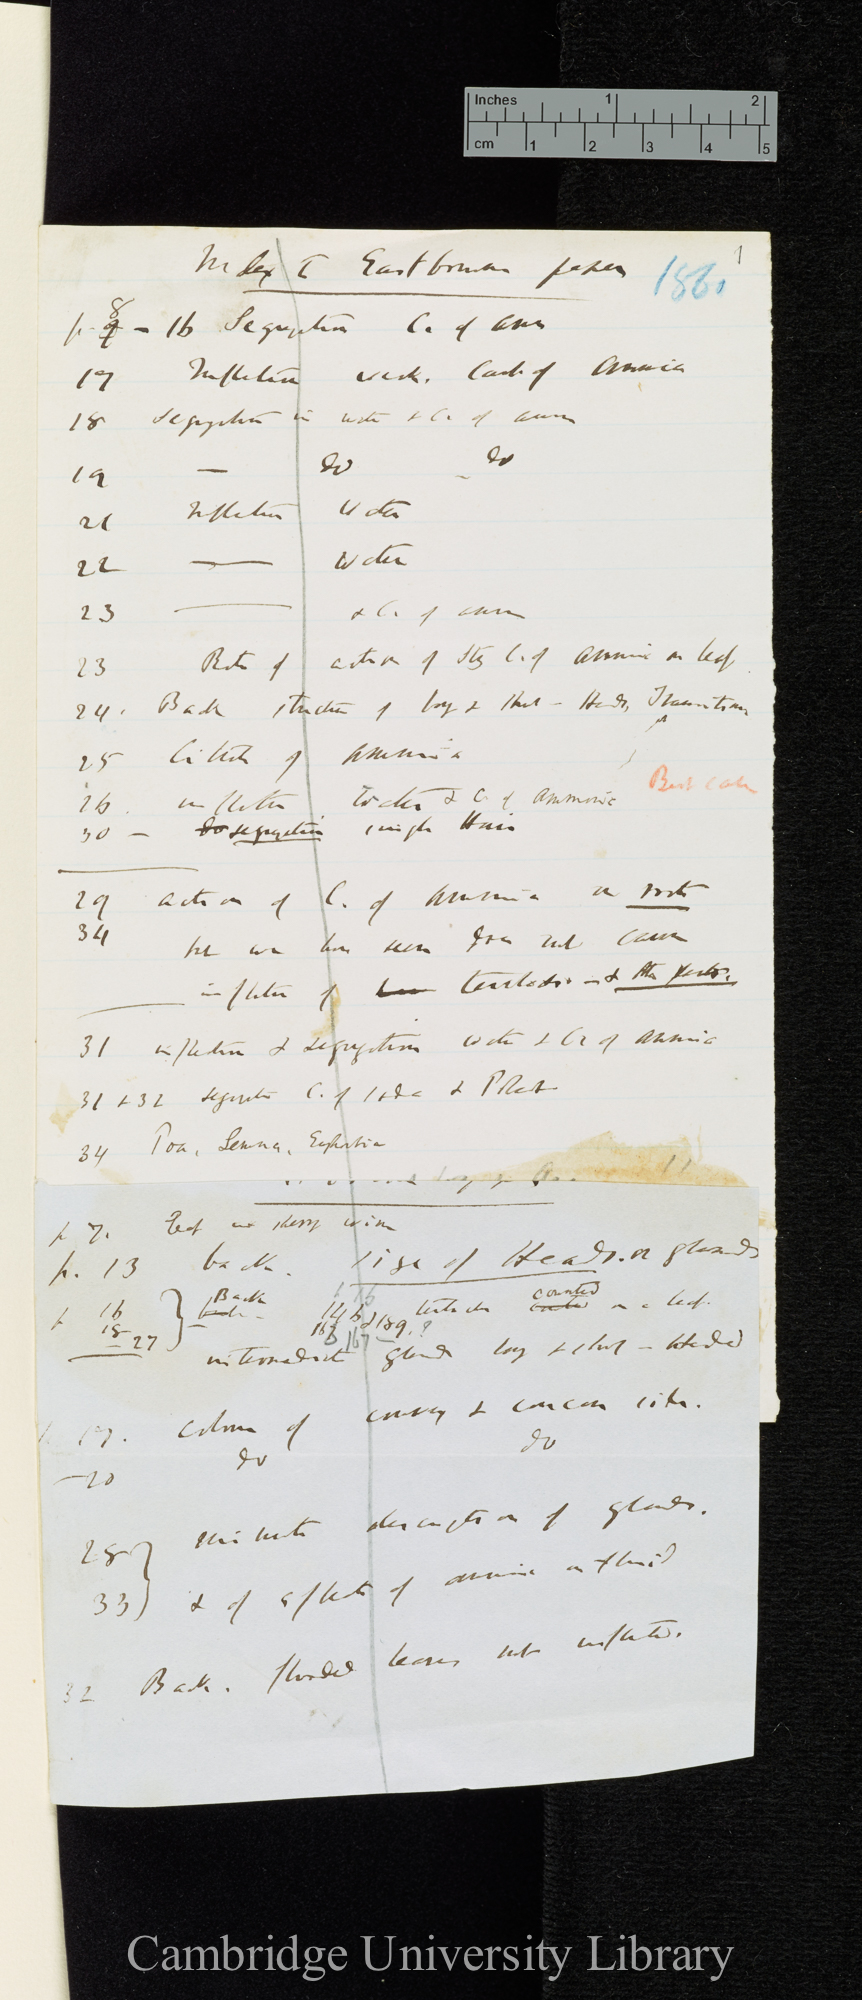 Inches 1 2
cm 1 2 3 4 5
1
Index to Eastbourne paper 1860
p. 8 – 16 Segregation C. of Amm
17 Inflection weak. Carb of Ammonia
18 Segregation in water & C. of amm
19 — do do
21 Inflection Water
22 — Water
23 — & C. of amm
23 Rate of action of C. of Ammonia on leaf
24. Back structure of long & short-Heads, Transitions
25 Citrate of Ammonia
26. inflection water & C. of Ammonia Best case
30 – do segregation single Hair
29 action of C. of Ammonia on roots
34 not cause
inflection of tentacles
31 inflection & segregation water & C. of Ammonia
31 & 32 segregation C. of soda & Potash
34 Poa, Lemna, Euphorbia
p 7. sherry wine
p. 13 back. size of Heads or glands
p 16 Back tentacles counted on a leaf.
18
– 27
intermediate glands long & short-headed
17. colour of convex & concave side.
– 20 do do
28 minute description of glands.
33 & of effects of ammonia
32 Back. flooded leaves not inflected.
Cambridge University Library